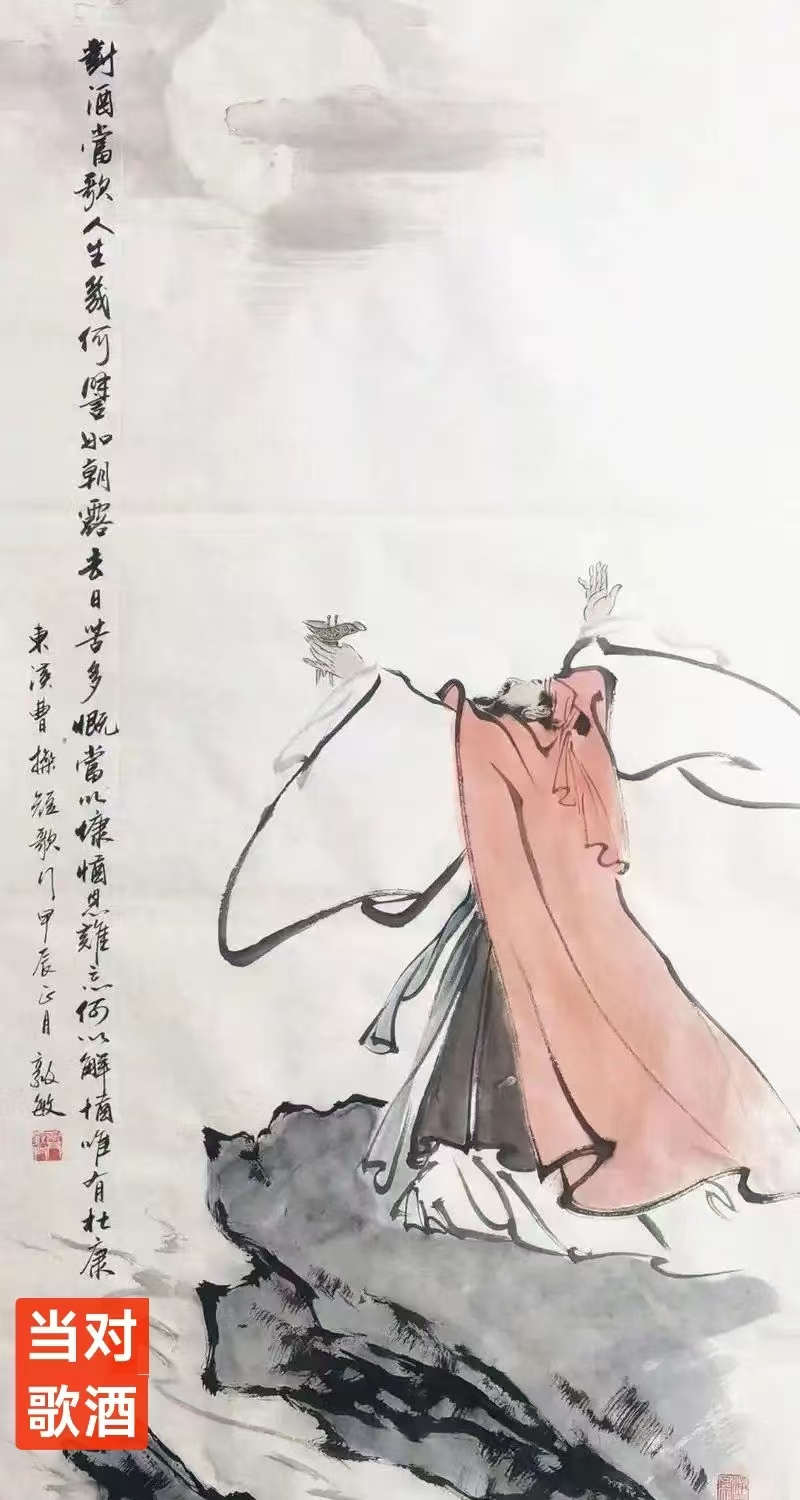 對酒當歌人生幾何譬如朝露去日苦多慨當以慷憂思難忘何以解憂唯有杜康
東漢曹操短歌行甲辰正月敏
对酒
当歌